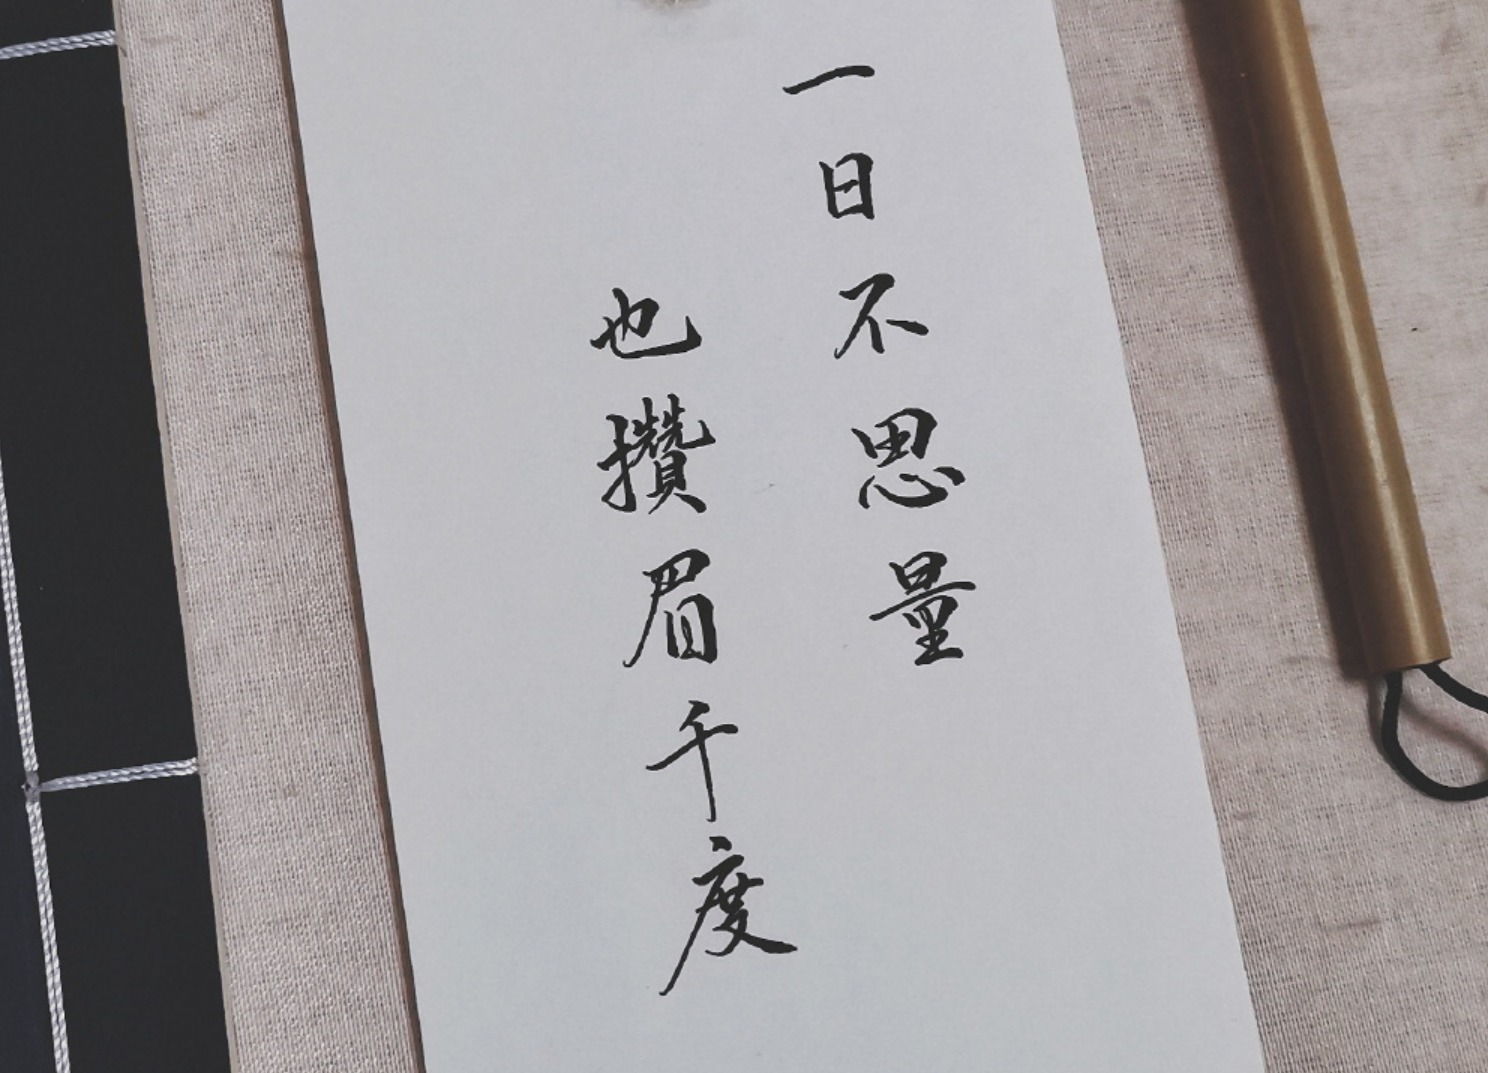 一日不思量
也攢眉千度